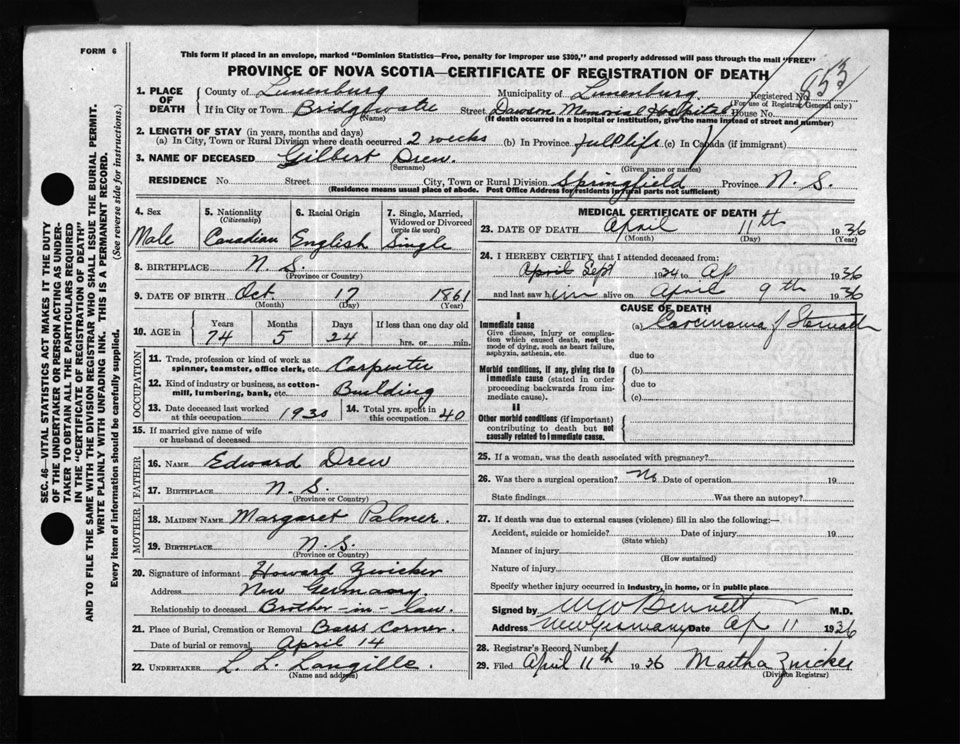 FORM 6
This form if placed in an envelope, marked "Dominion Statistics—Free, penalty for improper use $300," and properly addressed will pass through the mail "FREE"
PROVINCE OF NOVA SCOTIA—CERTIFICATE OF REGISTRATION OF DEATH
853
1. PLACE OF DEATH
County of Lunenburg Municipality of Lunenburg Registered No.
(For use of Registrar General only)
If in City or Town Bridgewater Street Dawson Memorial Hospital House No.
(Name) (If death occurred in a hospital or institution, give the name instead of street and number)
2. LENGTH OF STAY (in years, months and days)
(a) In City, Town or Rural Division where death occurred 2 weeks (b) In Province full life (c) In Canada (if immigrant)
3. NAME OF DECEASED Gilbert Drew.
(Surname) (Given name or names)
RESIDENCE No. Street City, Town or Rural Division Springfield Province N. S.
(Residence means usual place of abode. Post Office Address for residents in rural parts not sufficient)
SEC. 46—VITAL STATISTICS ACT MAKES IT THE DUTY
OF THE UNDERTAKER OR PERSON ACTING AS UNDER-
TAKER TO OBTAIN ALL THE PARTICULARS REQUIRED
IN THE "CERTIFICATE OF REGISTRATION OF DEATH"
AND TO FILE THE SAME WITH THE DIVISION REGISTRAR WHO SHALL ISSUE THE BURIAL PERMIT.
WRITE PLAINLY WITH UNFADING INK. THIS IS A PERMANENT RECORD.
Every item of information should be carefully supplied. (See reverse side for instructions.)
4. Sex 5. Nationality (Citizenship) 6. Racial Origin 7. Single, Married, Widowed or Divorced (write the word)
Male Canadian English Single
8. BIRTHPLACE N. S.
(Province or Country)
9. DATE OF BIRTH Oct. 17 1861
(Month) (Day) (Year)
10. AGE in Years Months Days If less than one day old
74 5 24 hrs. or min.
OCCUPATION
11. Trade, profession or kind of work as spinner, teamster, office clerk, etc. Carpenter
12. Kind of industry or business, as cotton-mill, lumbering, bank, etc. Building
13. Date deceased last worked at this occupation 1930 14. Total yrs. spent in this occupation 40
15. If married give name of wife or husband of deceased
FATHER
16. NAME Edward Drew
17. BIRTHPLACE N. S.
(Province or Country)
MOTHER
18. MAIDEN NAME Margaret Palmer.
19. BIRTHPLACE N. S.
(Province or Country)
20. Signature of informant Howard Zwicker
Address New Germany.
Relationship to deceased Brother-in-law.
21. Place of Burial, Cremation or Removal Barss Corner.
Date of burial or removal April 14
22. UNDERTAKER L. L. Langille.
(Name and address)
MEDICAL CERTIFICATE OF DEATH
23. DATE OF DEATH April 11th 1936
(Month) (Day) (Year)
24. I HEREBY CERTIFY that I attended deceased from:
April Sept to Ap 1936
and last saw him alive on April 9th 1936
CAUSE OF DEATH
I
Immediate cause (a) Carcinoma of Stomach
Give disease, injury or complication which caused death, not the mode of dying, such as heart failure, asphyxia, asthenia, etc.
due to
Morbid conditions, if any, giving rise to immediate cause (stated in order proceeding backwards from immediate cause).
(b)
due to
(c)
II
Other morbid conditions (if important) contributing to death but not causally related to immediate cause.
25. If a woman, was the death associated with pregnancy?
26. Was there a surgical operation? No Date of operation 19
State findings Was there an autopsy?
27. If death was due to external causes (violence) fill in also the following:—
Accident, suicide or homicide? Date of injury 19
(State which)
Manner of injury
(How sustained)
Nature of injury
Specify whether injury occurred in industry, in home, or in public place
Signed by Bennett M.D.
Address New Germany Date Ap 11 1936
28. Registrar's Record Number
29. Filed April 11th 1936 Martha Zwicker
(Division Registrar)